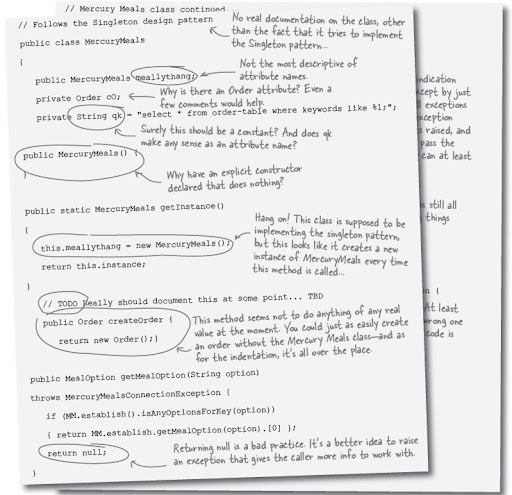 // Mercury Meals class continued
// Follows the Singleton design pattern
No real documentation on the class, other
than the fact that it tries to implement
the Singleton pattern...
public class MercuryMeals
{
public MercuryMeals meallythang;
Not the most descriptive of
attribute names.
private Order o0;
Why is there an Order attribute? Even a
few comments would help.
private String qk = "select * from order-table where keywords like %1;";
Surely this should be a constant? And does qk
make any sense as an attribute name?
public MercuryMeals() {
}
Why have an explicit constructor
declared that does nothing?
public static MercuryMeals getInstance()
{
this.meallythang = new MercuryMeals();
return this.instance;
}
Hang on! This class is supposed to be
implementing the singleton pattern,
but this looks like it creates a new
instance of MercuryMeals every time
this method is called...
// TODO Really should document this at some point... TBD
public Order createOrder {
return new Order();}
This method seems not to do anything of any real
value at the moment. You could just as easily create
an order without the Mercury Meals class—and as
for the indentation, it's all over the place.
public MealOption getMealOption(String option)
throws MercuryMealsConnectionException {
if (MM.establish().isAnyOptionsForKey(option))
{ return MM.establish.getMealOption(option).[0] };
return null;
Returning null is a bad practice. It's a better idea to raise
an exception that gives the caller more info to work with.
}
indication
cept by just
exceptions
xception
s raised, and
pass the
can at least
s still all
things
on {
At least
wrong one
code is